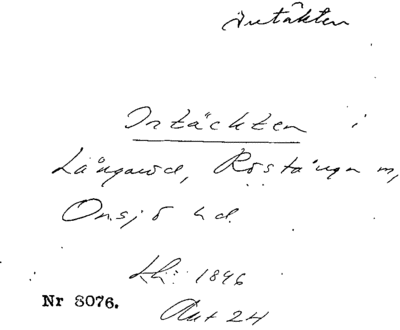 Intäkten
Intäckten i
Långaröd, Röstånga sn,
Onsjö hd.
Lh: 1846
Nr 8076.
Akt 24